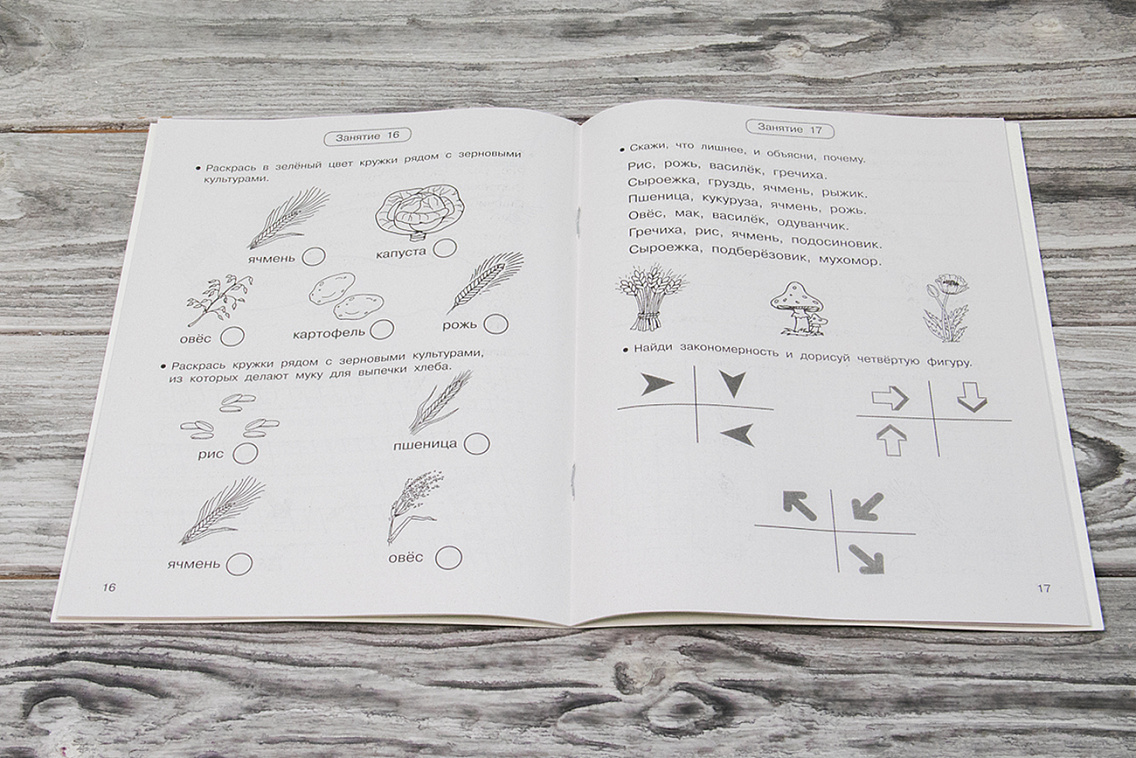 Занятие 16
• Раскрась в зелёный цвет кружки рядом с зерновыми
культурами.
ячмень
капуста
овёс
картофель
рожь
• Раскрась кружки рядом с зерновыми культурами,
из которых делают муку для выпечки хлеба.
рис
пшеница
ячмень
овёс
16
Занятие 17
• Скажи, что лишнее, и объясни, почему.
Рис, рожь, василёк, гречиха.
Сыроежка, груздь, ячмень, рыжик.
Пшеница, кукуруза, ячмень, рожь.
Овёс, мак, василёк, одуванчик.
Гречиха, рис, ячмень, подосиновик.
Сыроежка, подберёзовик, мухомор.
• Найди закономерность и дорисуй четвёртую фигуру.
17